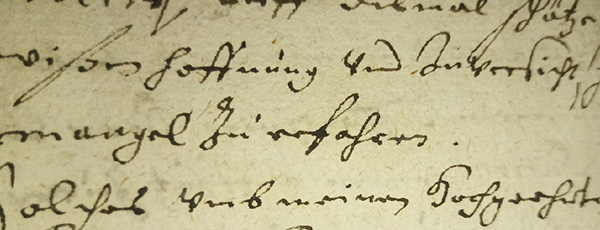 diesmal
wissen hoffnung vnd Zuversicht
mangel Zu erfahren.
Solches vmb meinen Hochgeehrte